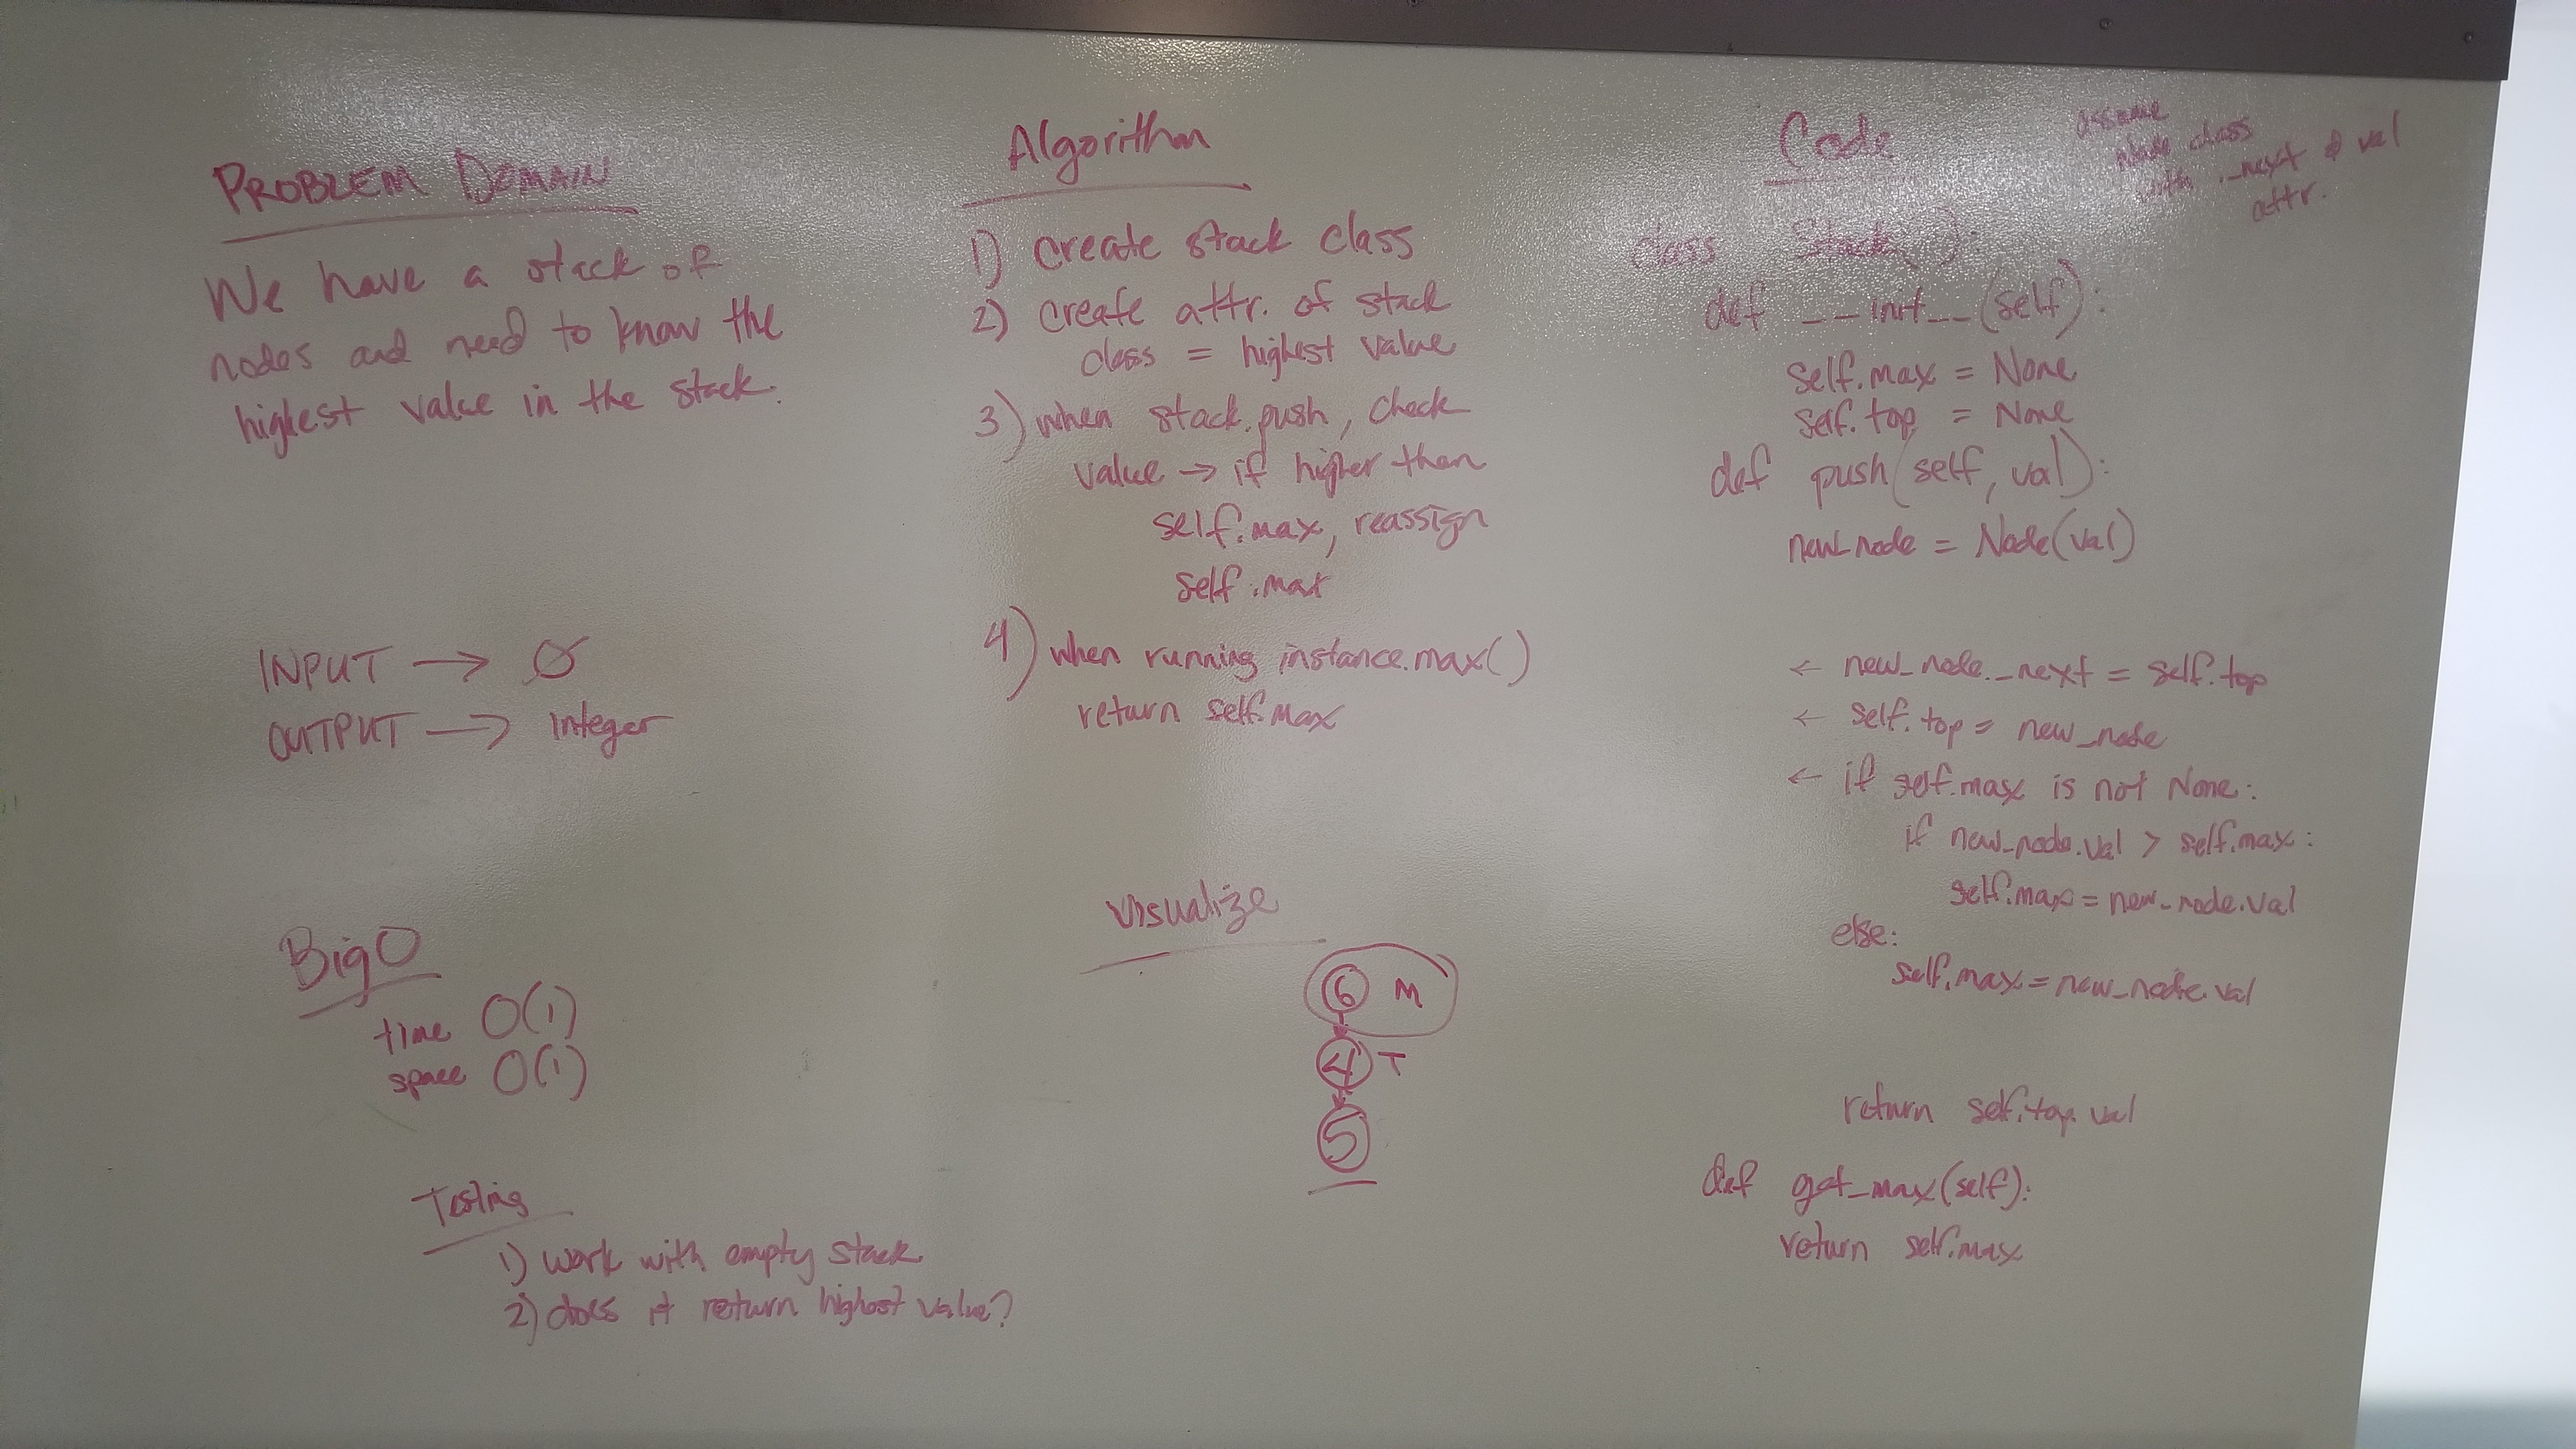 PROBLEM DOMAIN
We have a stack of
nodes and need to know the
highest value in the stack.
INPUT → ∅
OUTPUT → Integer
Big O
time O(1)
space O(1)
Testing
1) work with empty stack
2) does it return highest value?
Algorithm
1) create stack class
2) create attr. of stack
class = highest value
3) when stack.push, check
value → if higher than
self.max, reassign
self.max
4) when running instance.max()
return self.max
Visualize
6 M
4 T
5
Code
assume
node class
with ._next & val
attr.
class Stack():
def __init__(self):
self.max = None
self.top = None
def push(self, val):
new_node = Node(val)
← new_node._next = self.top
← self.top = new_node
← if self.max is not None:
if new_node.val > self.max:
self.max = new_node.val
else:
self.max = new_node.val
return self.top.val
def get_max(self):
return self.max